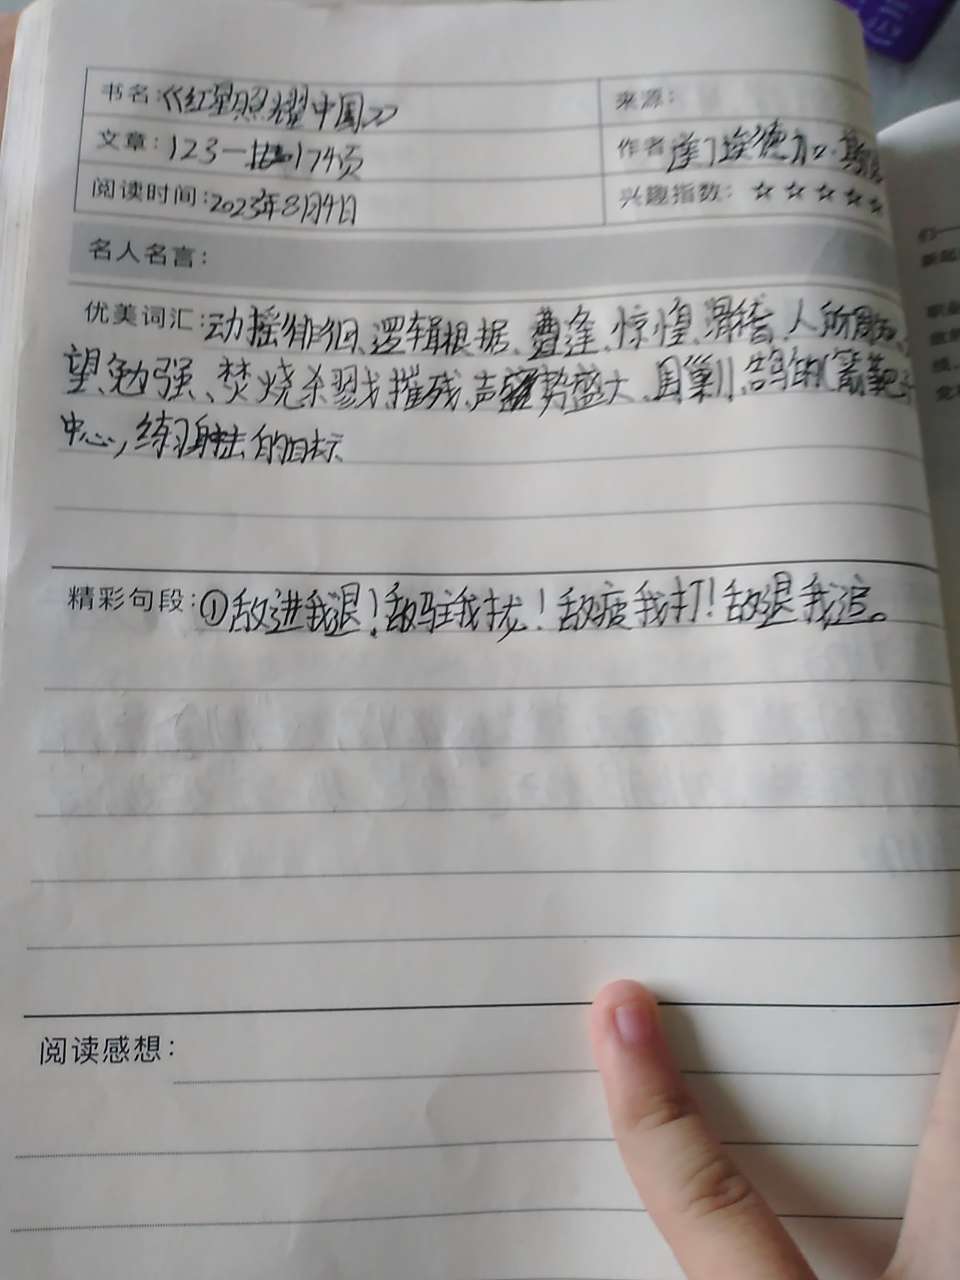 书名:《红星照耀中国》
来源:
文章:123—174页
作者 埃德加·斯
阅读时间:2023年8月4日
兴趣指数:☆☆☆☆☆
名人名言:
优美词汇:动摇徘徊、逻辑根据、惊惶、滑稽、人所
望、勉强、焚烧杀戮、摧残、声势盛大、围剿、鸽的箭靶子
中心,练习射击的目标
精彩句段:①敌进我退!敌驻我扰!敌疲我打!敌退我追。
阅读感想: